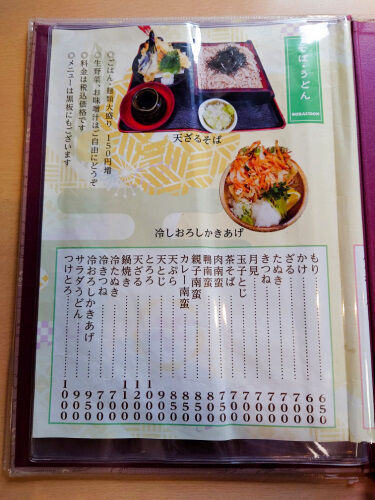 そば・うどん
SOBA&UDON
天ざるそば
冷しおろしかきあげ
◆ごはん、麺類大盛り 150円増
◆生野菜、お味噌汁はご自由にどうぞ
◆料金は税込価格です
◆メニューは黒板にもございます
もり……650
かけ……600
ざる……700
たぬき……700
きつね……700
月見……700
玉子とじ……700
茶そば……
肉南蛮……
鴨南蛮……
親子南蛮……850
カレー南蛮……850
天ぷら……850
天とじ……900
とろろ……1000
天ざる……1200
鍋焼き……1100
冷たぬき……700
冷きつね……700
冷おろしかきあげ……950
サラダうどん……900
つけとろ……1000